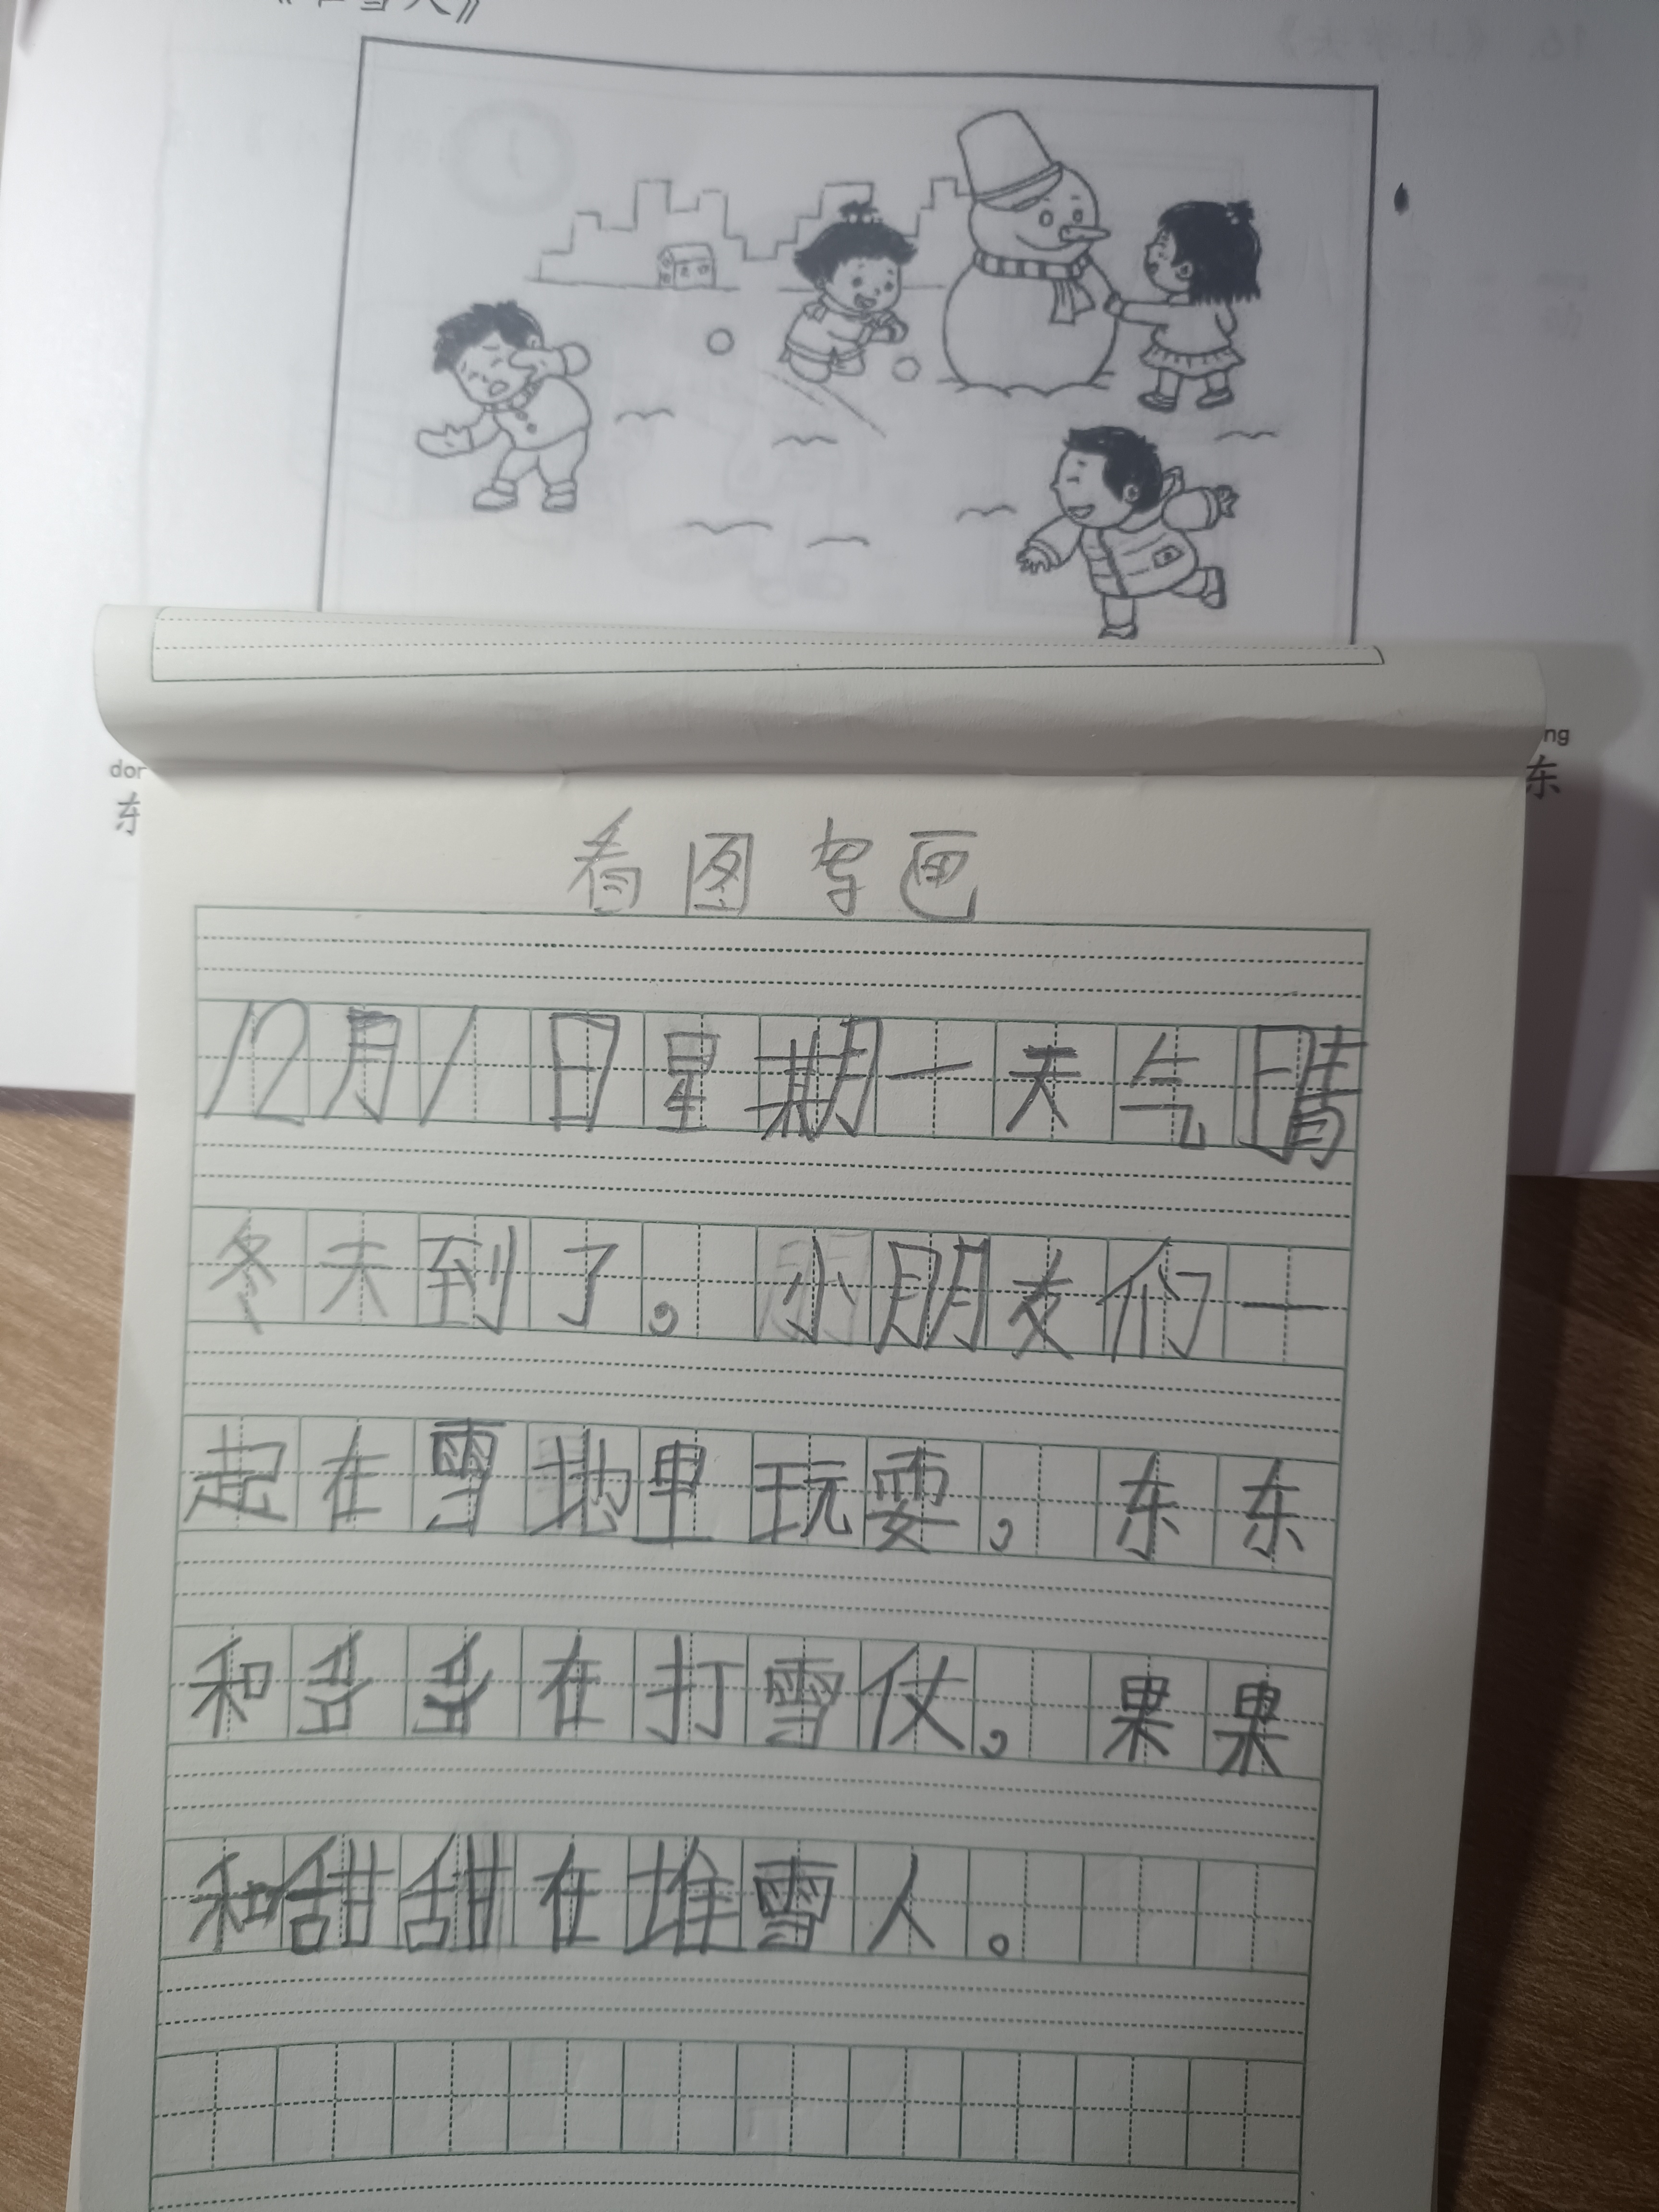 雪人》
dor
东
ng
东
看图写画
12月1日星期一天气晴
冬天到了。小朋友们一
起在雪地里玩耍。东东
和多多在打雪仗。果果
和甜甜在堆雪人。